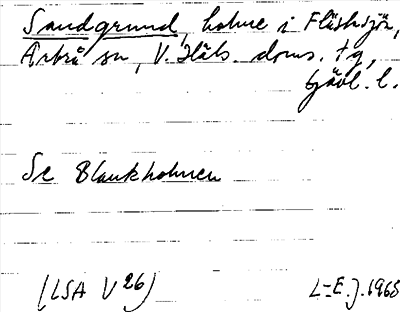 Sandgrund, holme i Fläsksjön,
Arbrå sn, V. Häls. doms. tg,
Gävl. l.
Se Blankholmen
(LSA V 26) L-E. J. 1968